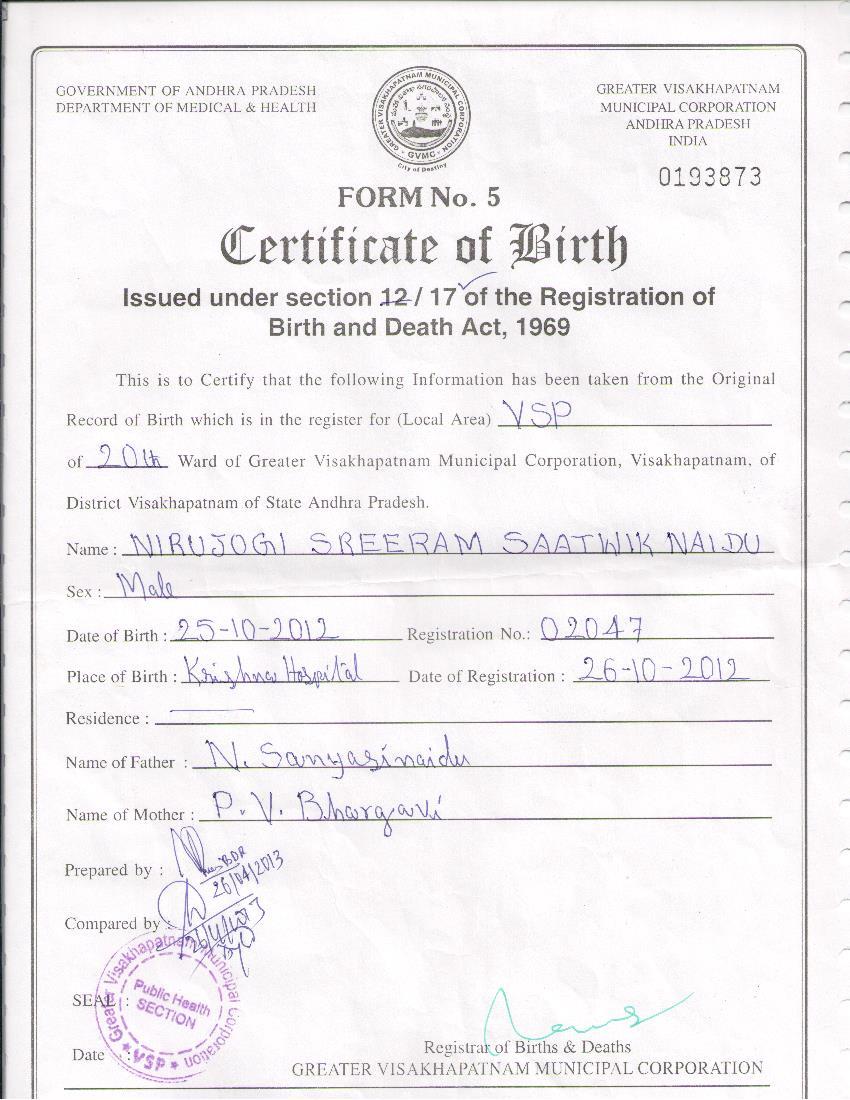 GOVERNMENT OF ANDHRA PRADESH
DEPARTMENT OF MEDICAL & HEALTH
GREATER VISAKHAPATNAM MUNICIPAL CORPORATION
GVMC
City of Destiny
GREATER VISAKHAPATNAM
MUNICIPAL CORPORATION
ANDHRA PRADESH
INDIA
0193873
FORM No. 5
Certificate of Birth
Issued under section 12 / 17 of the Registration of
Birth and Death Act, 1969
This is to Certify that the following Information has been taken from the Original
Record of Birth which is in the register for (Local Area) VSP
of 20th Ward of Greater Visakhapatnam Municipal Corporation, Visakhapatnam, of
District Visakhapatnam of State Andhra Pradesh.
Name : NIRUJOGI SREERAM SAATWIK NAIDU
Sex : Male
Date of Birth : 25-10-2012 Registration No.: 02047
Place of Birth : Krishna Hospital Date of Registration : 26-10-2012
Residence :
Name of Father : N. Sanyasinaidu
Name of Mother : P. V. Bhargavi
Prepared by :
26/04/2013
Compared by :
SEAL :
Greater Visakhapatnam Municipal Corporation
Public Health
SECTION
VSP
Date :
Registrar of Births & Deaths
GREATER VISAKHAPATNAM MUNICIPAL CORPORATION